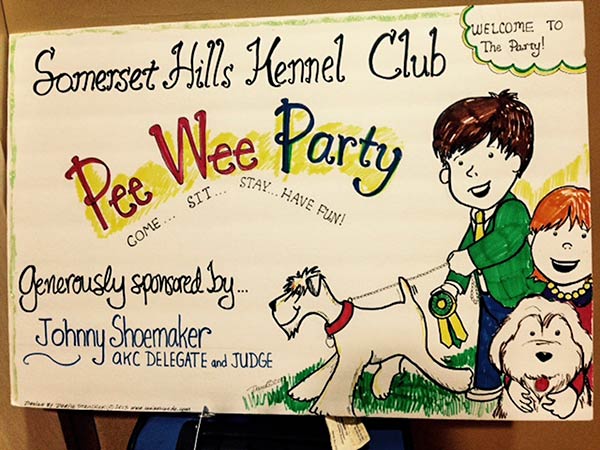 Somerset Hills Kennel Club
WELCOME TO
The Party!
Pee Wee Party
COME... SIT... STAY... HAVE FUN!
generously sponsored by...
Johnny Shoemaker
AKC DELEGATE and JUDGE